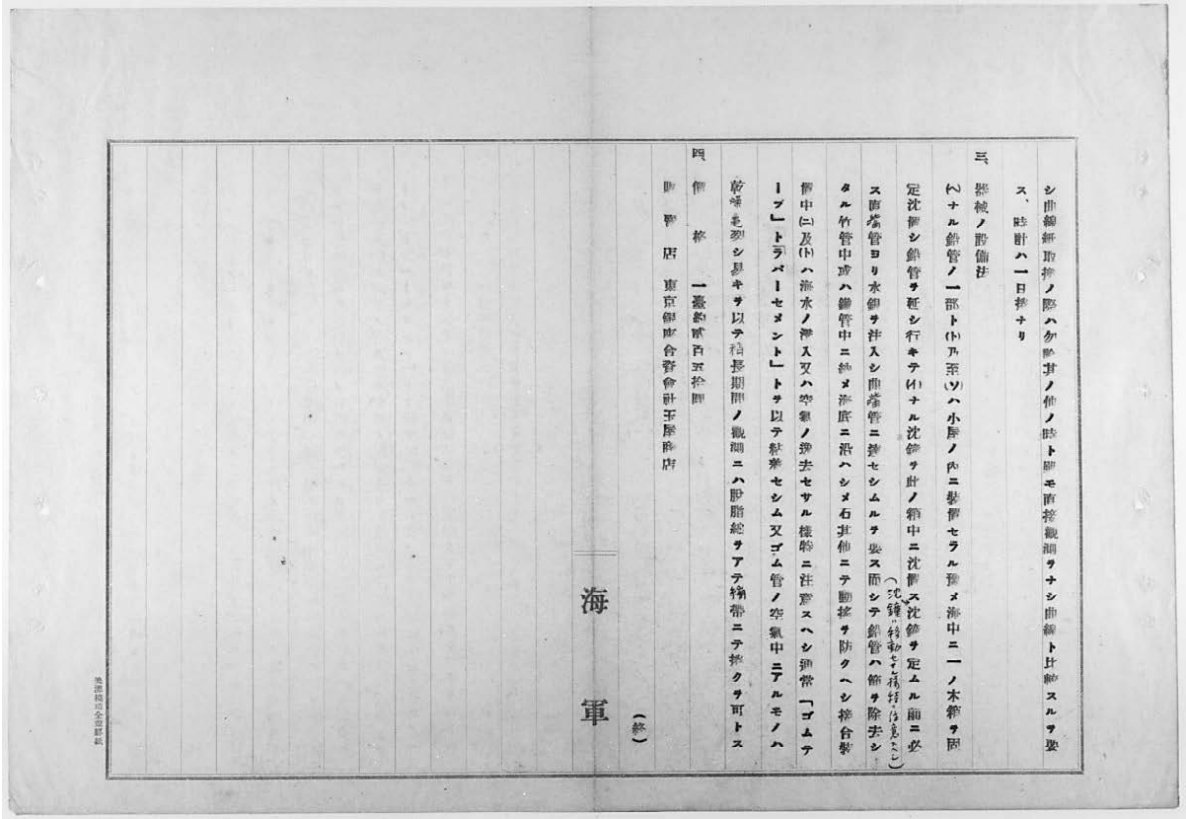 シ曲線紙取換ノ際ハ勿論其ノ他ノ時ト雖モ直接觀測ヲナシ曲線ト比較スルヲ要
ス、時計ハ一日捲ナリ
三、器械ノ設備法
(ヘ)ナル鉛管ノ一部ト(ト)乃至(ソ)ハ小屋ノ内ニ裝置セラル豫メ海中ニ一ノ木箱ヲ固
定沈置シ鉛管ヲ延シ行キテ(イ)ナル沈鐘ヲ此ノ箱中ニ沈置ス沈鐘ヲ定ムル前ニ必
(沈鐘ハ移動セサル樣特ニ注意スヘシ)
ス直端管ヨリ水銀ヲ注入シ曲端管ニ達セシムルヲ要ス而シテ鉛管ハ節ヲ除去シ
タル竹管中或ハ鐵管中ニ納メ海底ニ沿ハシメ石其他ニテ動搖ヲ防クヘシ接合裝
置中(ニ)及(ト)ハ海水ノ滲入又ハ空氣ノ逸去セサル樣特ニ注意スヘシ通常「ゴムテ
ープ」ト「ラバーセメント」トヲ以テ粘着セシム又ゴム管ノ空氣中ニアルモノハ
乾燥龜裂シ易キヲ以テ稍長期間ノ觀測ニハ脫脂綿ヲアテ繃帶ニテ捲クヲ可トス
四、價格 一臺約貳百五拾圓
販賣店 東京銀座合資會社玉屋商店
(終)
海軍